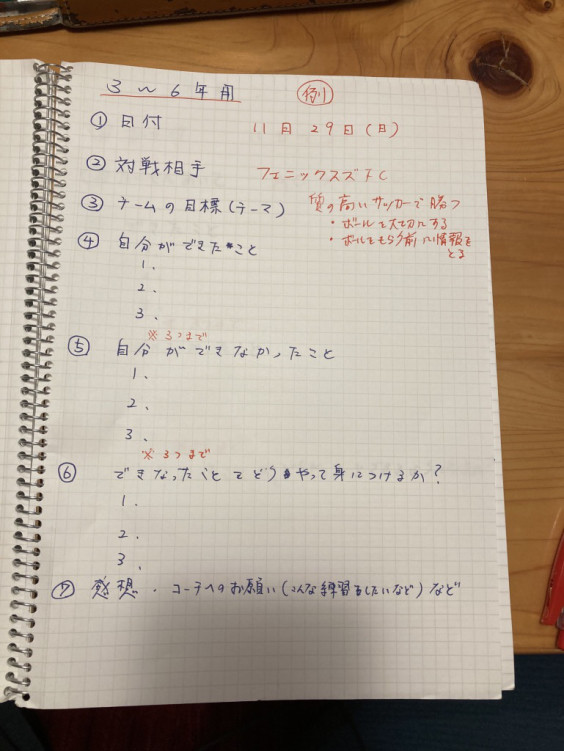 3〜6年用 例
① 日付 11月29日(日)
② 対戦相手 フェニックスズFC
③ チームの目標(テーマ) 質の高いサッカーで勝つ
・ボールを大切にする
・ボールをもらう前に情報を
とる
④ 自分ができたこと
1、
2、
3、
※3つまで
⑤ 自分ができなかったこと
1、
2、
3、
※3つまで
⑥ できなったことてどうやって身につけるか?
1、
2、
3、
⑦ 感想・コーチへのお願い(こんな練習をしたいなど)など